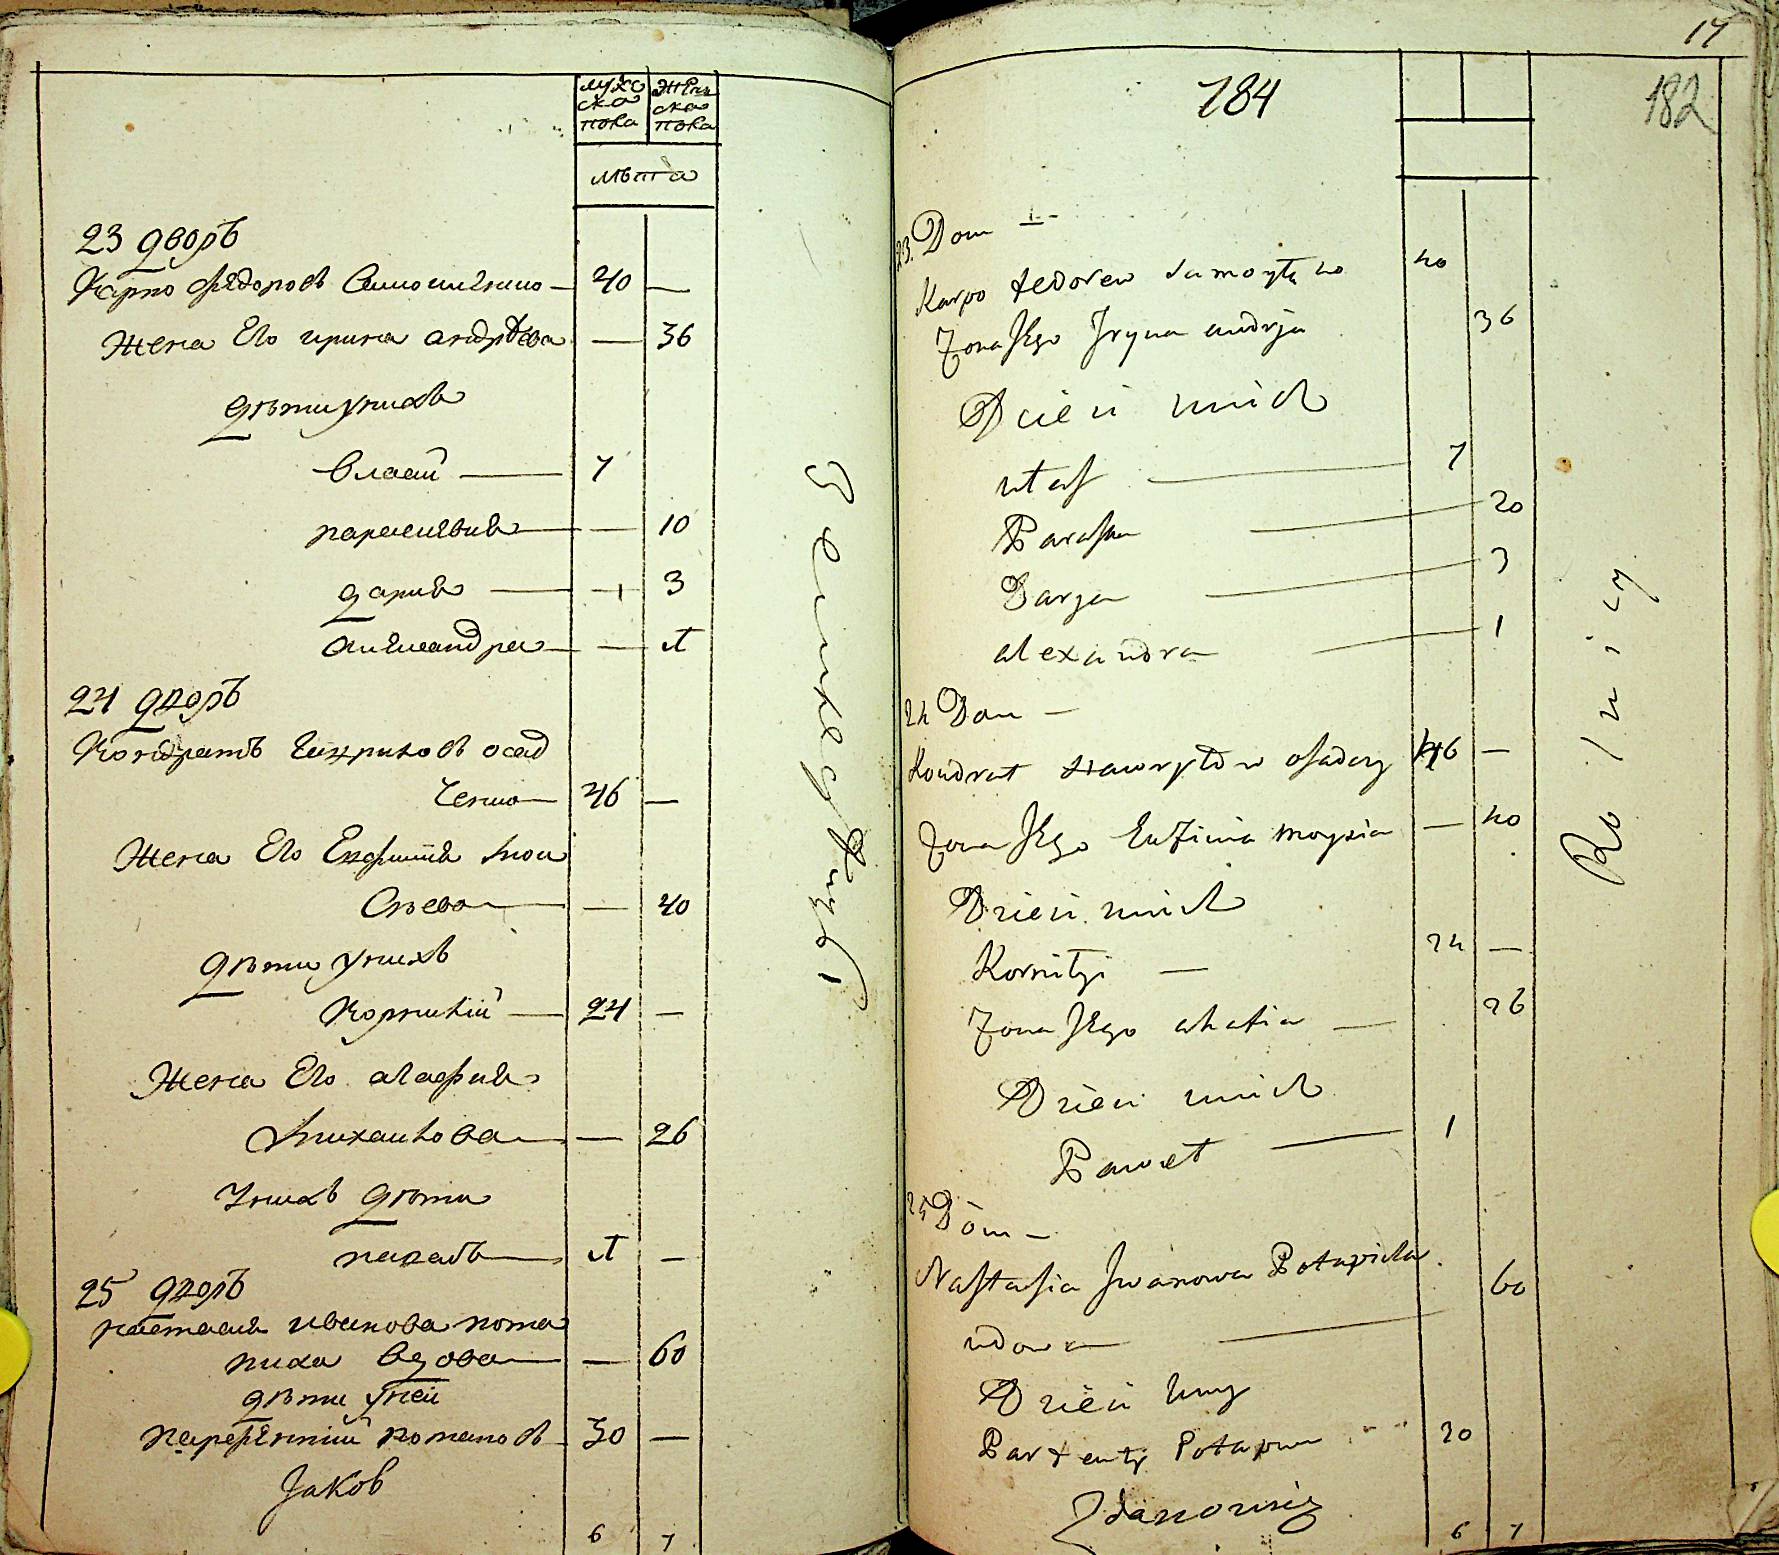 мужс
ска
пола
женс
ска
пола
лѣта
23 дворъ
Карпо Фядоровъ 40 —
Жена Его ирина андрѣева — 36
дѣти у нихъ
власий — 7
парасковия — 10
дария — 3
александра — 1
24 дворъ
Кондратъ осад
чено — 46 —
Жена Его Евфимия мои
сѣева — 40
дѣти у нихъ
Корнилий — 24 —
Жена Его агафия
михаилова — 26
У нихъ дѣти
павалъ — 1 —
25 дворъ
настасия иванова пота
пиха вдова — 60
дѣти у ней
парфентий 30 —
Jаковъ
6 7
17
184
182
23. Dom —
Karpo Fedorew 40
Zona Jego Jryna andrja 36
Dzieci u nich
wlas — 7
Paraska — 20
Darya — 3
alexandra — 1
24 Dom —
Kondrat Hawryłow osadczy 46 —
Zona Jego Eufimia moysia — 40
Dzieci u nich
Kornilyi — 24 —
Zona Jego ahafia — 26
Dzieci u nich
Paweł — 1
25 Dom —
Nastasia Jwanowa Potapicha 60
wdowa —
Dzieci u niy
Parfenty Potapow 20
Zdanowicz
6 7
Rolnicy